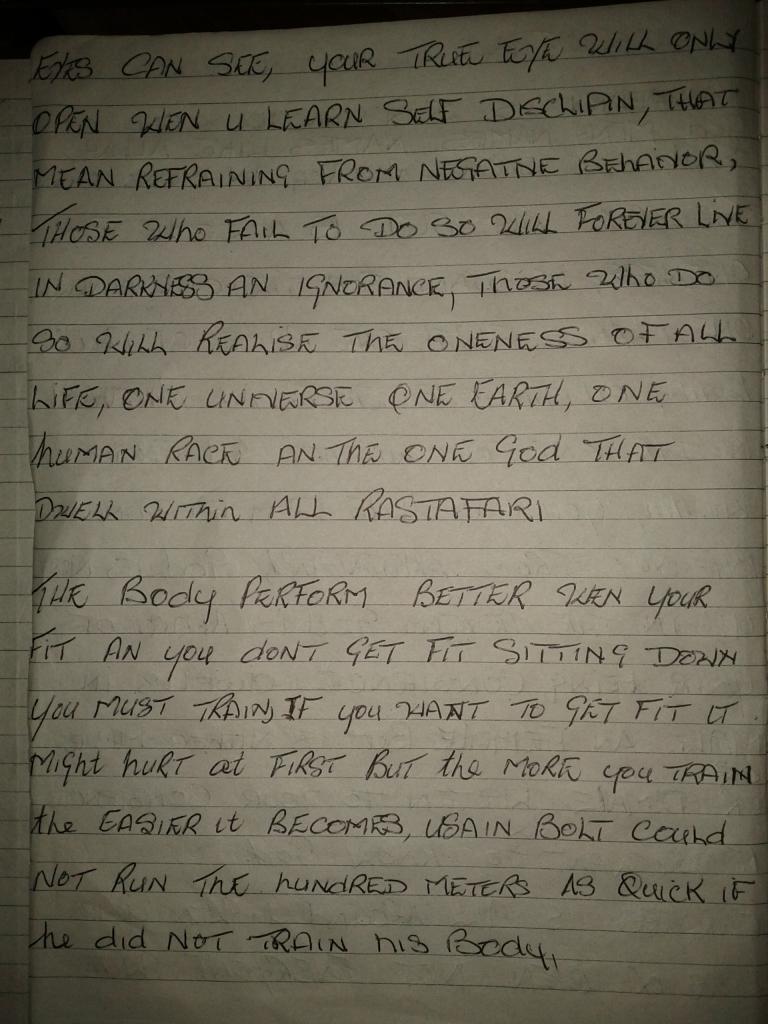 EYES CAN SEE, YOUR TRUE EYE WILL ONLY
OPEN WEN U LEARN SELF DISCLIPIN, THAT
MEAN REFRAINING FROM NEGATIVE BEHAVIOR,
THOSE WHO FAIL TO DO SO WILL FOREVER LIVE
IN DARKNESS AN IGNORANCE, THOSE WHO DO
SO WILL REALISE THE ONENESS OF ALL
LIFE, ONE UNIVERSE ONE EARTH, ONE
HUMAN RACE AN THE ONE God THAT
DWELL WITHIN ALL RASTAFARI
THE Body PERFORM BETTER WEN YOUR
FIT AN you dONT GET FIT SITTING DOWN
YOU MUST TRAIN, IF you WANT TO GET FIT IT
Might huRT at FIRST BUT the MORE you TRAIN
the EASIER it BECOMES, USAIN BOLT Could
NOT RUN THE hUNDRED METERS AS QUICK IF
he did NOT TRAIN his Body,